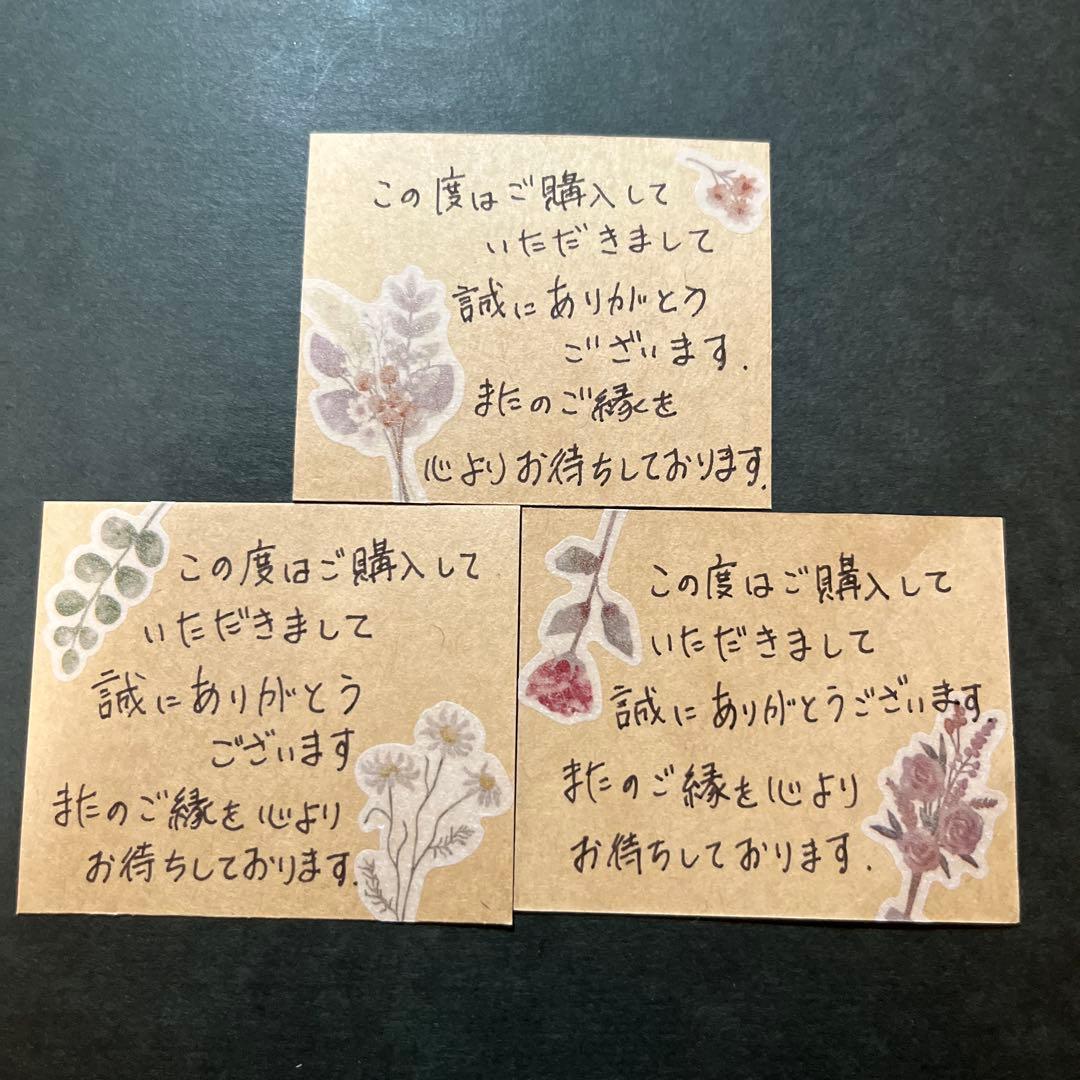 この度はご購入して
いただきまして
誠にありがとう
ございます.
またのご縁を
心よりお待ちしております.
この度はご購入して
いただきまして
誠にありがとう
ございます
またのご縁を心より
お待ちしております.
この度はご購入して
いただきまして
誠にありがとうございます.
またのご縁を心より
お待ちしております.